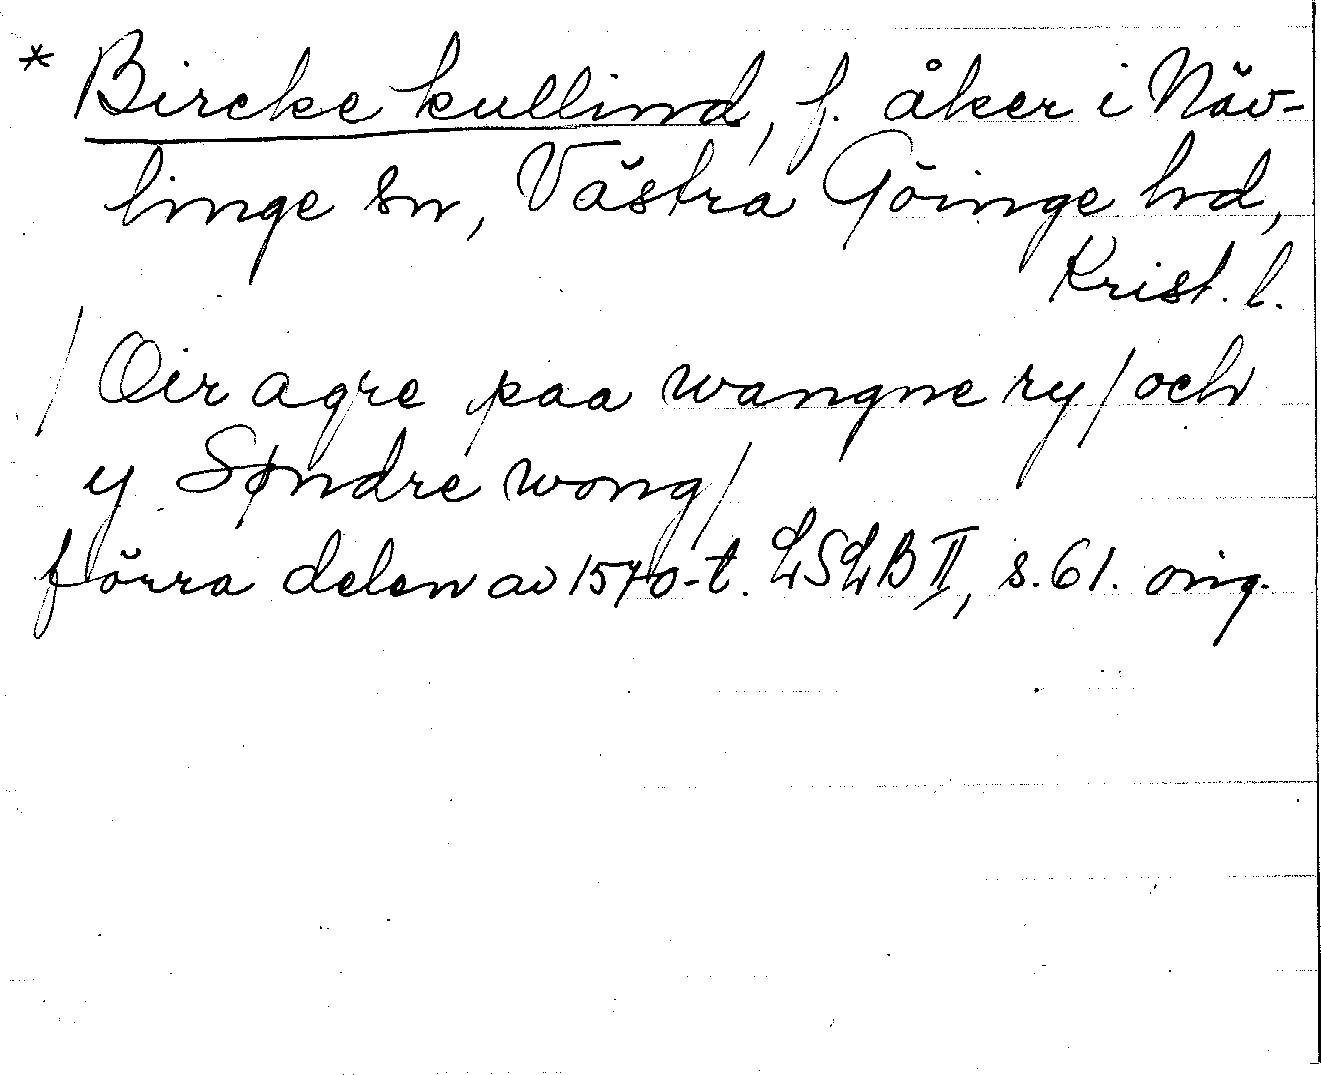 * Bircke kullind, f. åker i Näv-
linge sn, Västra Göinge hd,
Krist. l.
/ Oir agre paa wangne ry / och
y Søndre wong /
förra delen av 1570-t. LSLB II, s. 61. orig.